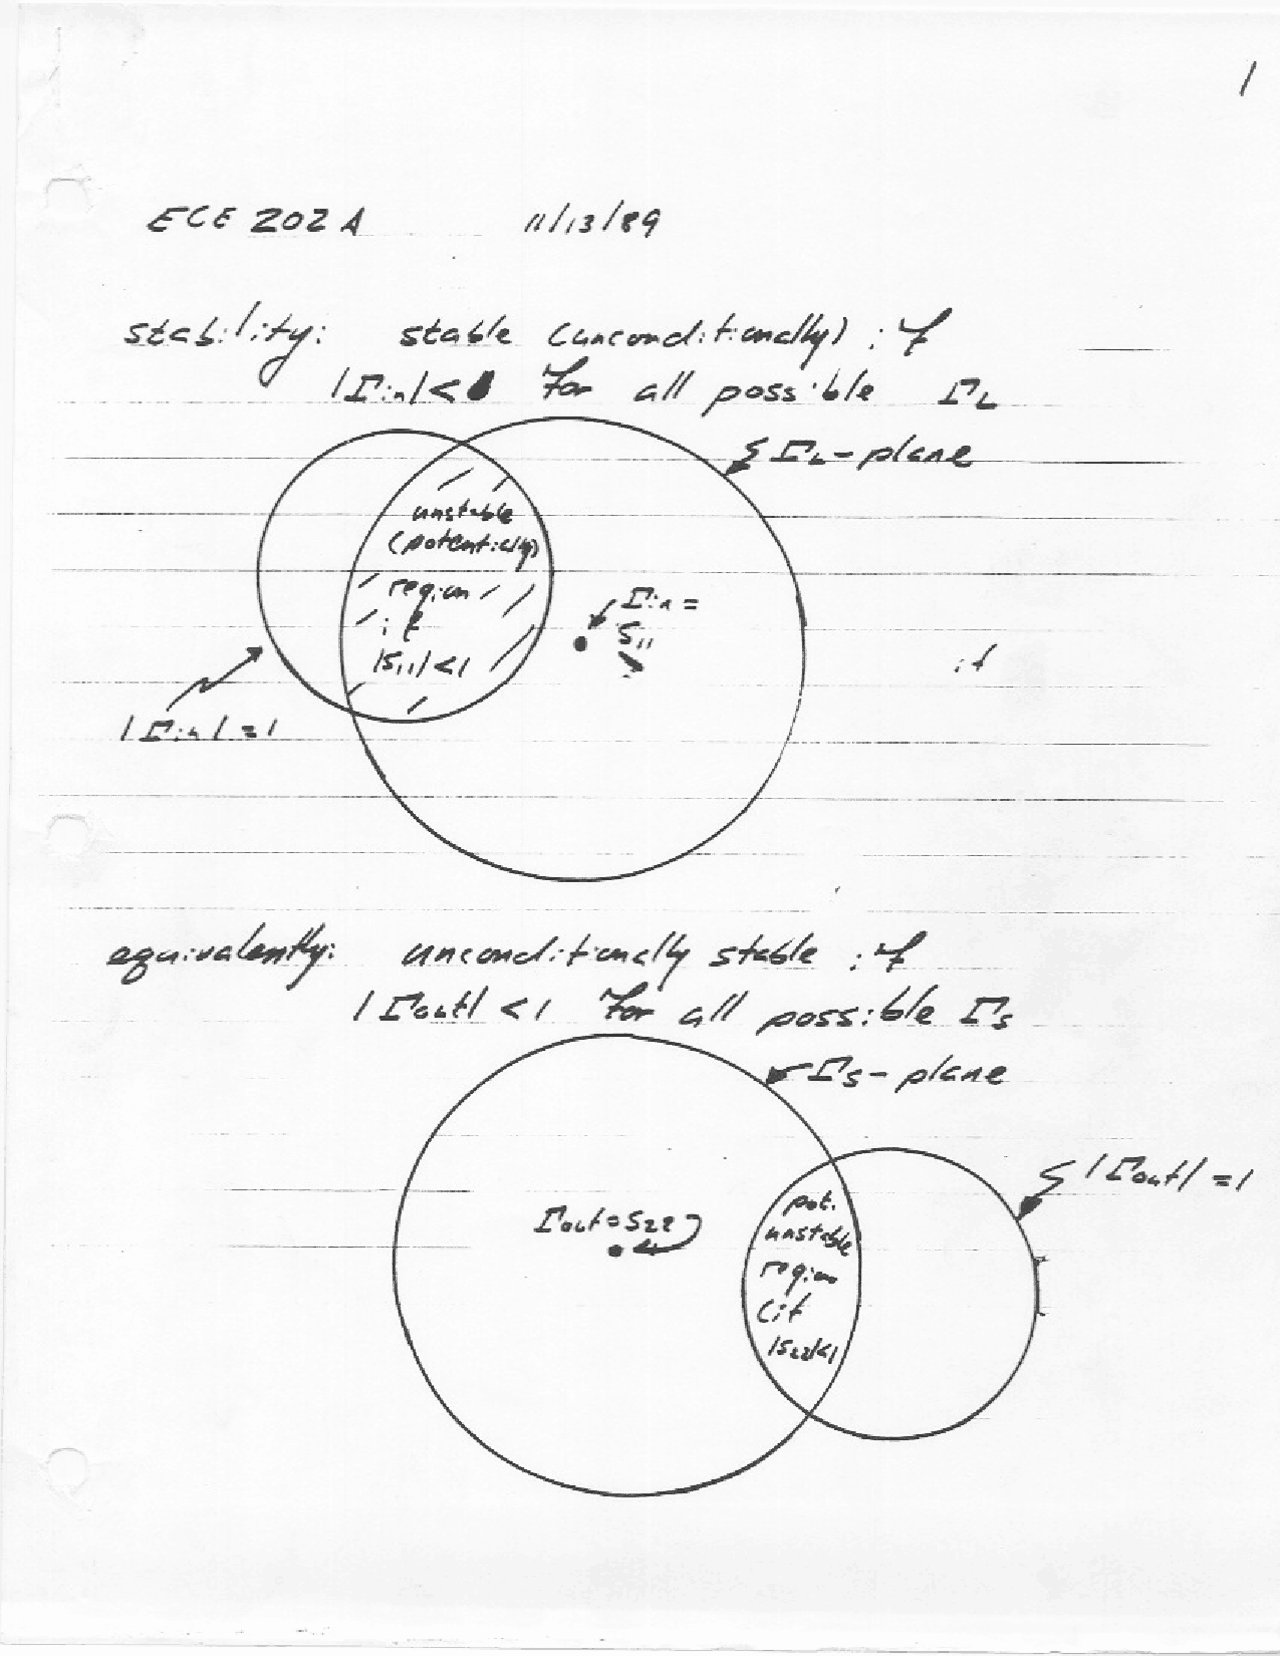 1
ECE 202A 11/13/89
stability: stable (unconditionally) if
|Γin| < for all possible ΓL
ΓL-plane
unstable
(potentially)
region
if
|S11| <1
Γin =
S11
if
|Γin| = 1
equivalently: unconditionally stable if
|Γout| < 1 for all possible Γs
Γs-plane
|Γout| = 1
Γout = S22
pot.
unstable
region
(if
|S22|<1